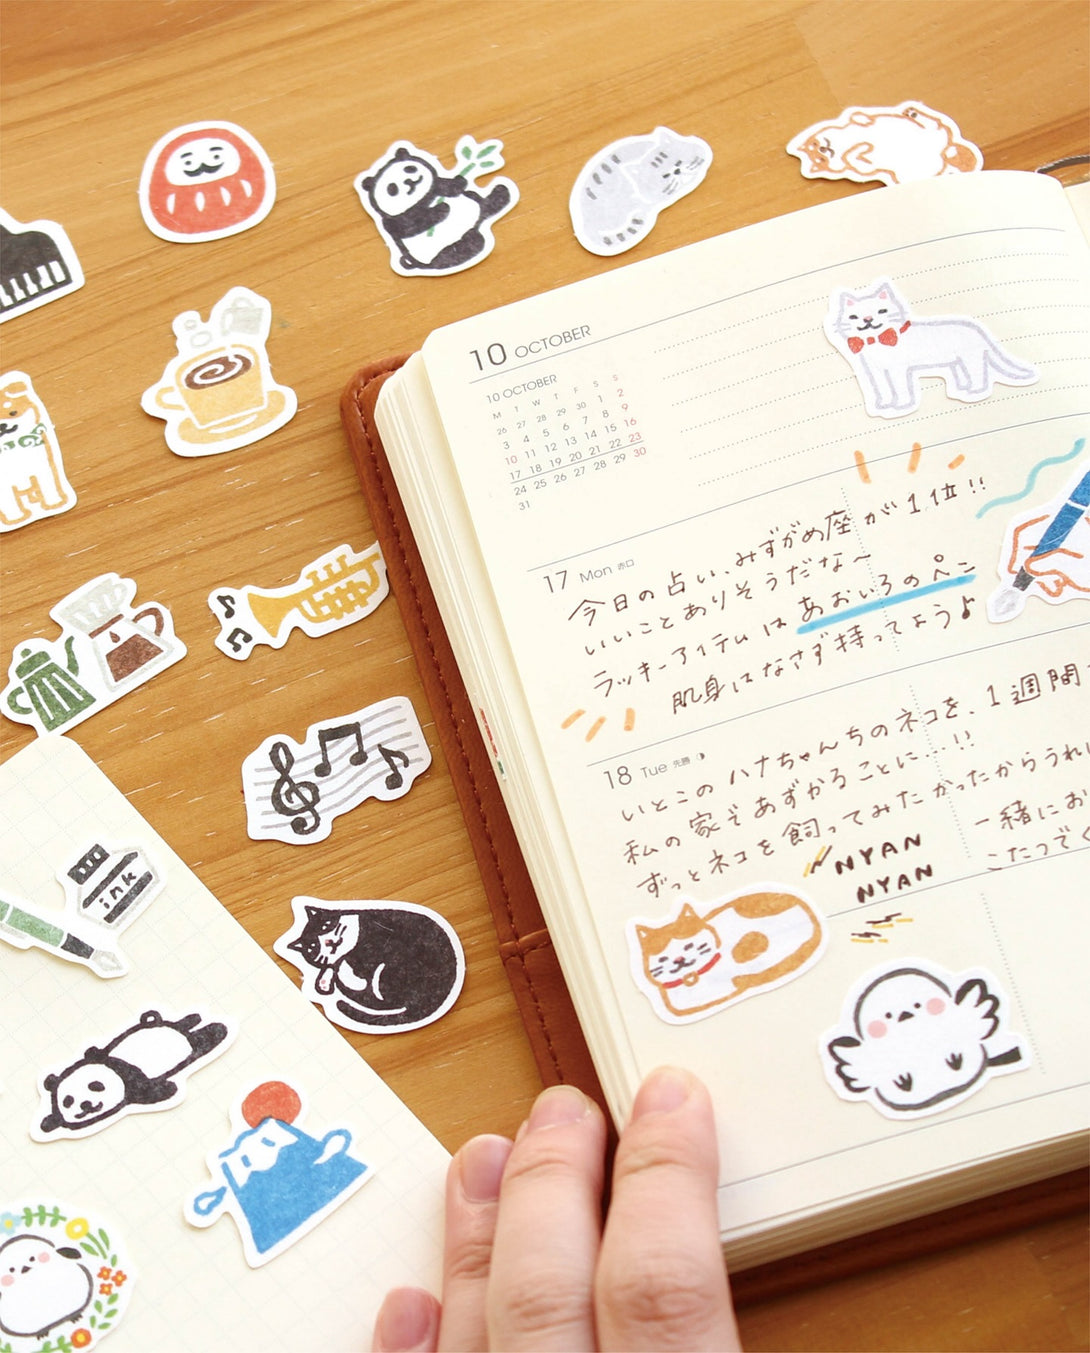 10 OCTOBER
10 OCTOBER
M T W T F S S
26 27 28 29 30 1 2
3 4 5 6 7 8 9
10 11 12 13 14 15 16
17 18 19 20 21 22 23
24 25 26 27 28 29 30
31
17 Mon 赤口
今日の占い、みずがめ座が1位!!
いいことありそうだな〜
ラッキーアイテムはあおいろのペン
肌身はなさず持ってよう♪
18 Tue 先勝
いとこのハナちゃんちのネコを、1週間
私の家であずかることに…!!
ずっとネコを飼ってみたかったからうれ
一緒にお
こたつで
NYAN
NYAN
ink